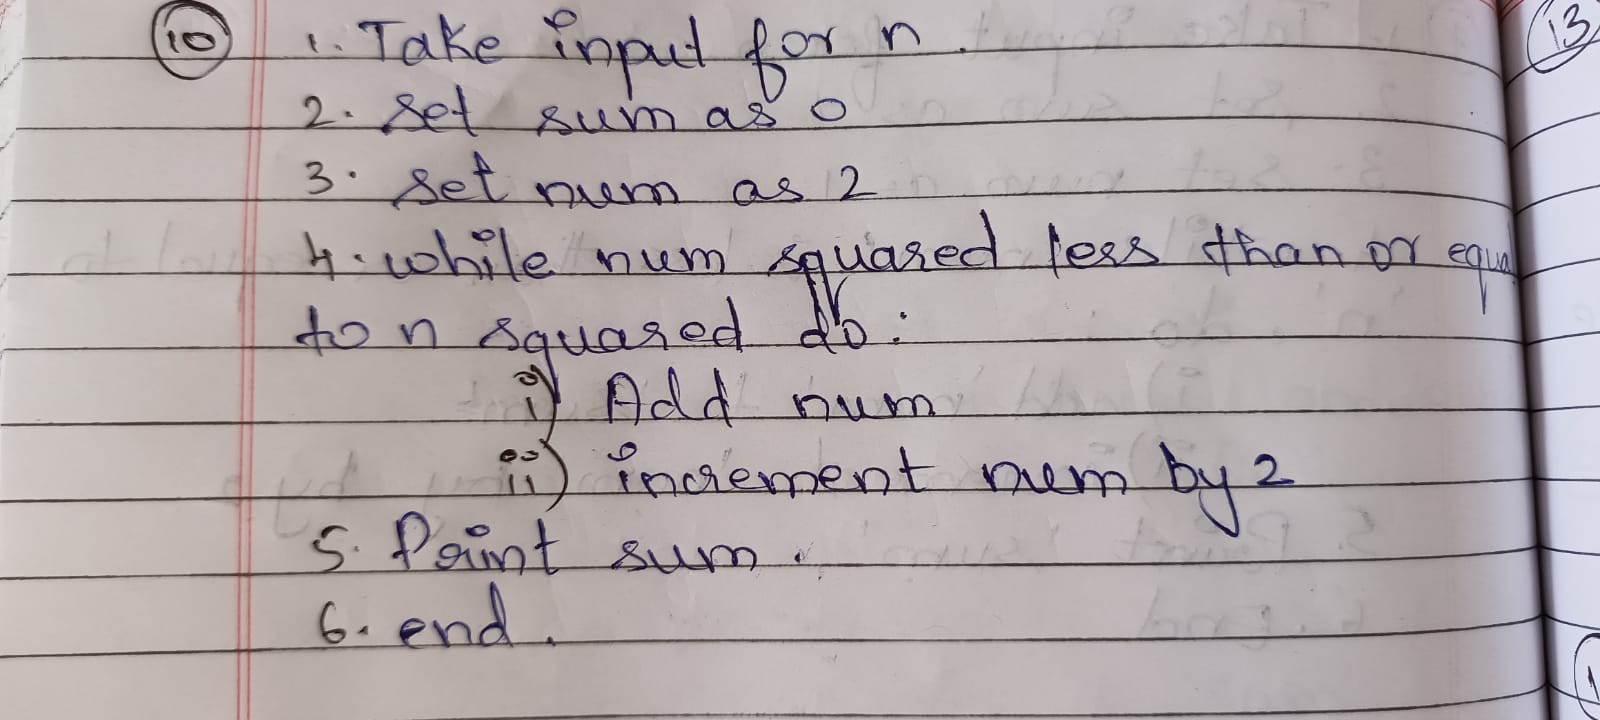 10 1. Take input for n.
2. set sum as 0
3. set num as 2
4. while num squared less than or equal
to n squared do:
i) Add num
ii) increment num by 2
5. Print sum.
6. end.
13